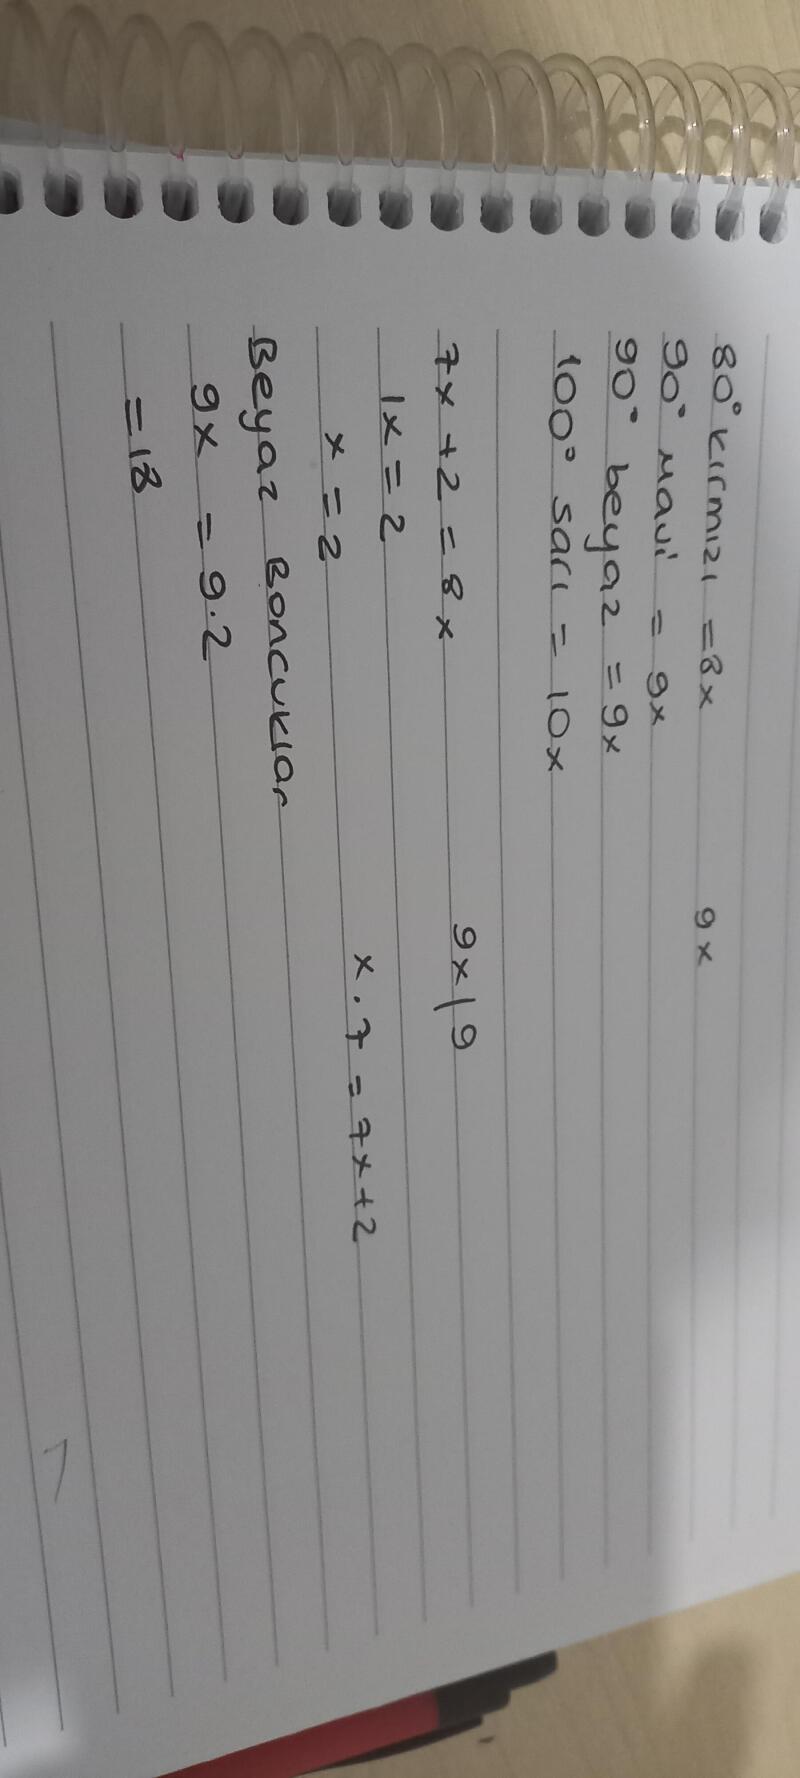 80° kırmızı = 8x
9x
90° mavi = 9x
90° beyaz = 9x
100° sarı = 10x
7x + 2 = 8x
9x | 9
1x = 2
x = 2
x . 7 = 7x + 2
Beyaz Boncuklar
9x = 9.2
= 18